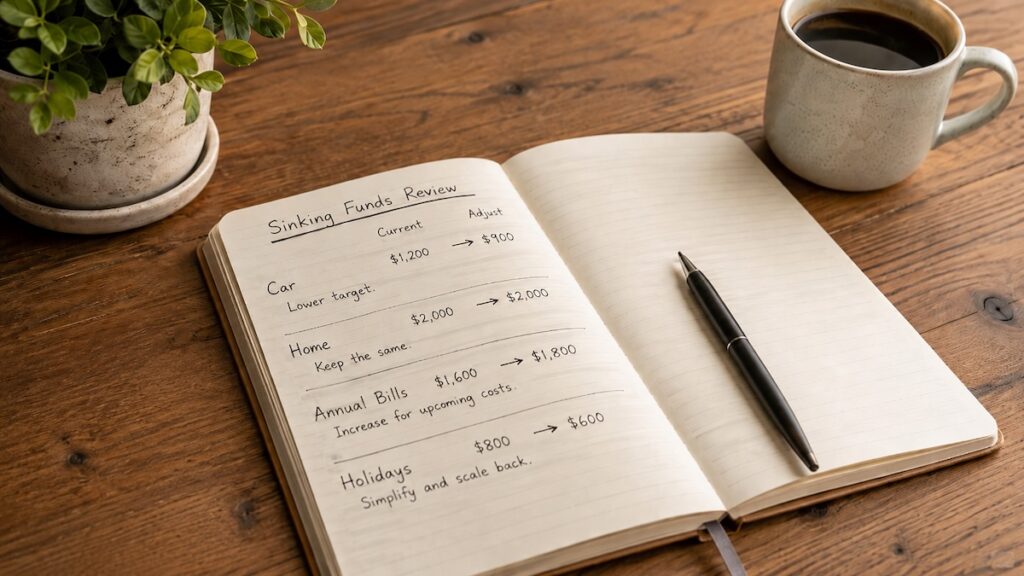 Sinking Funds Review
Current Adjust
$1,200 → $900
Car
Lower target.
$2,000 → $2,000
Home
Keep the same.
Annual Bills $1,600 → $1,800
Increase for upcoming costs.
$800 → $600
Holidays
Simplify and scale back.